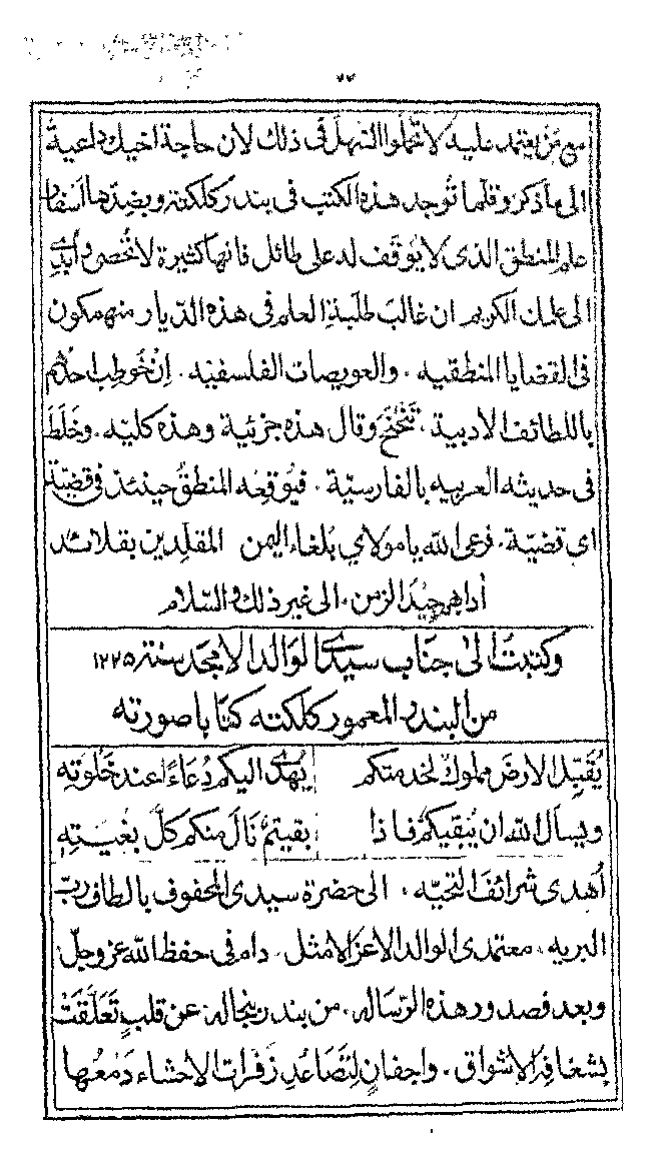 ٧٧
مع مَن يعتمد عليه لا تمهلوا التهل فى ذلك لان حاجة اخيك داعيةٌ
الى ما ذكر وقلما تُوجد هذه الكتب فى بندر كلكته وبضدّها اسفار
علم المنطق الذى لا يُوقَف له على طائل فانها كثيرة لا تُحصى وأُبدِى
الى علمك الكريم ان غالبَ طَلَبةِ العلم فى هذه الديار منهمكون
فى القضايا المنطقيه ، والعويصات الفلسفيّه . اِن خُوطِب احدُهم
باللطائف الادبية ، تَنَحْنَحَ وقال هذه جزئية وهذه كليّه . وخَلَطَ
فى حديثه العربيه بالفارسيّة ، فيُوقِعُه المنطقُ حينئذ فى قضيّة
اى قضيّة . فرعى الله يا مولاى بُلغاءَ اليمن المقلِّدين بقلائد
أدابهم جِيْدَ الزمن ، الى غير ذلك والسّلام
وكتبتُ الىٰ جناب سيدى الوالد الامجد سنة ١٢٢٥
من البندر المعمور كلكته كتابا صورته
يُقَبِّل الارضَ مملوكٌ لخدمتكم يُهدى اليكم دُعاءً اعند خَلْوتِه
ويسأل الله ان يُبقيكمُ فاذا بقيتمُ نَالَ منكم كلَّ بغيَتِهِ
أُهدى شرائفَ التحيّه ، الى حضرة سيدى المحفوف بالطاف ربّ
البريه ، معتمدى الوالد الاعز الامثل ، دام فى حفظ الله عز وجلّ
وبعد فصدور هذه الرّساله ، من بندر بنجاله ، عن قلبٍ تَعَلَّقَتْ
بشغافِه الاشواق ، واجفانٍ لِتَصَاعُدِ زَفَرات الاحشاء دَمْعُها